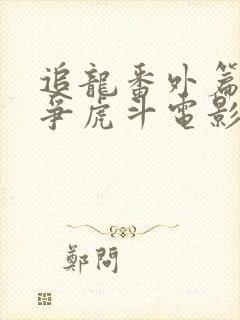 追龍番外篇
爭虎斗電影
鄭問